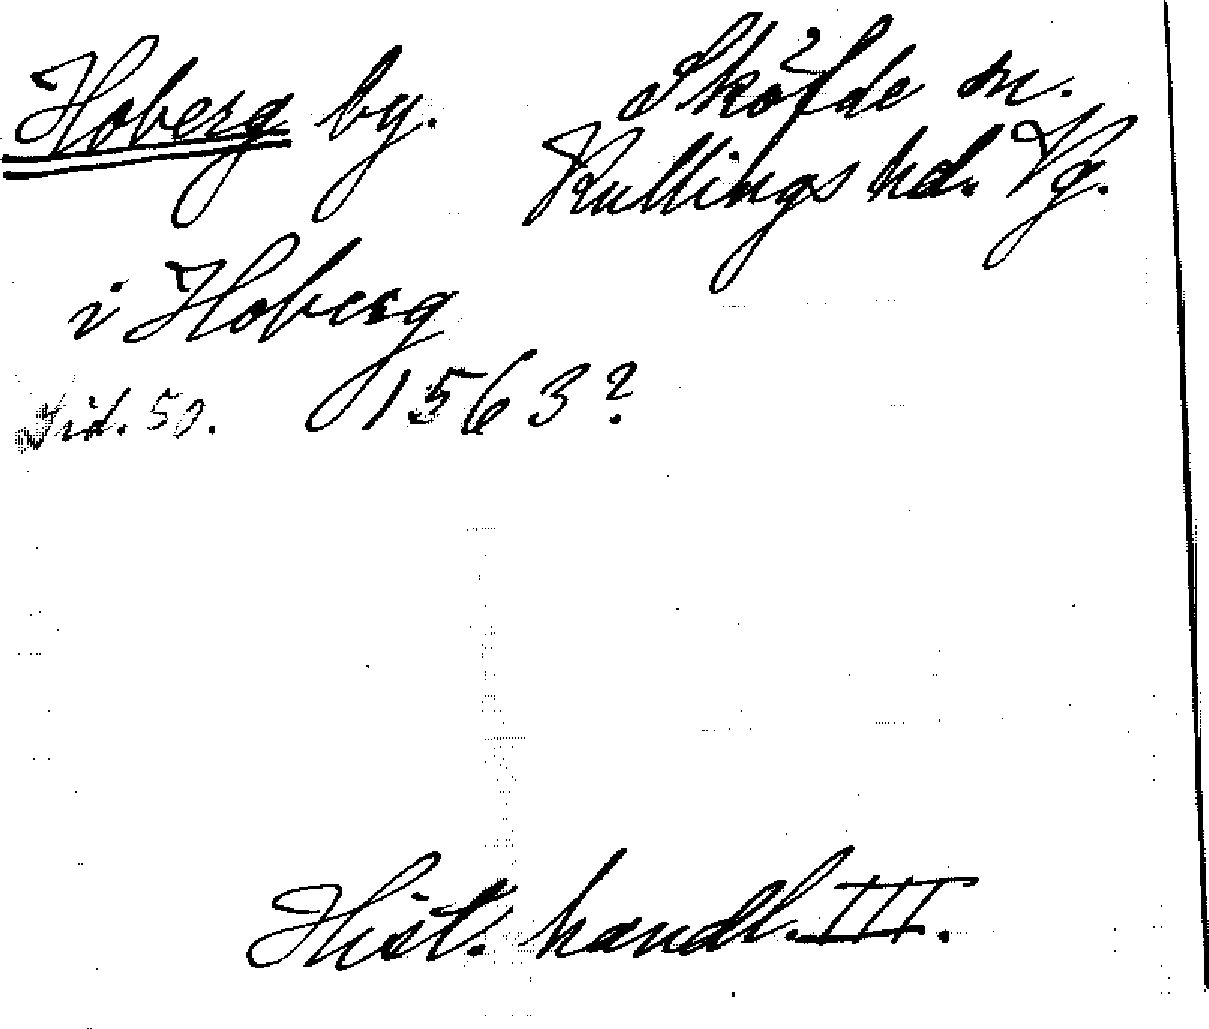 Hoberg by. Skölde sn.
Kullings hd. Vg.
i Hoberg
Sid. 50. 1563?
Hist. handl. III.